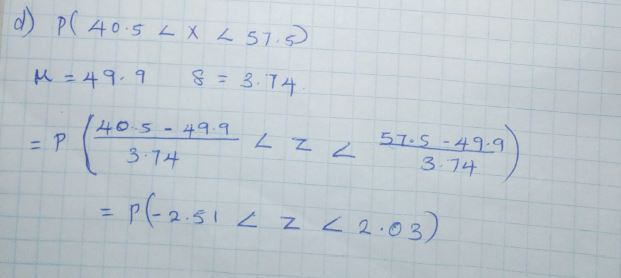 d) P( 40.5 < X < 57.5)
μ = 49.9 8 = 3.74.
= P ( (40.5 - 49.9)/3.74 < Z < (57.5 - 49.9)/3.74 )
= P(-2.51 < Z < 2.03)